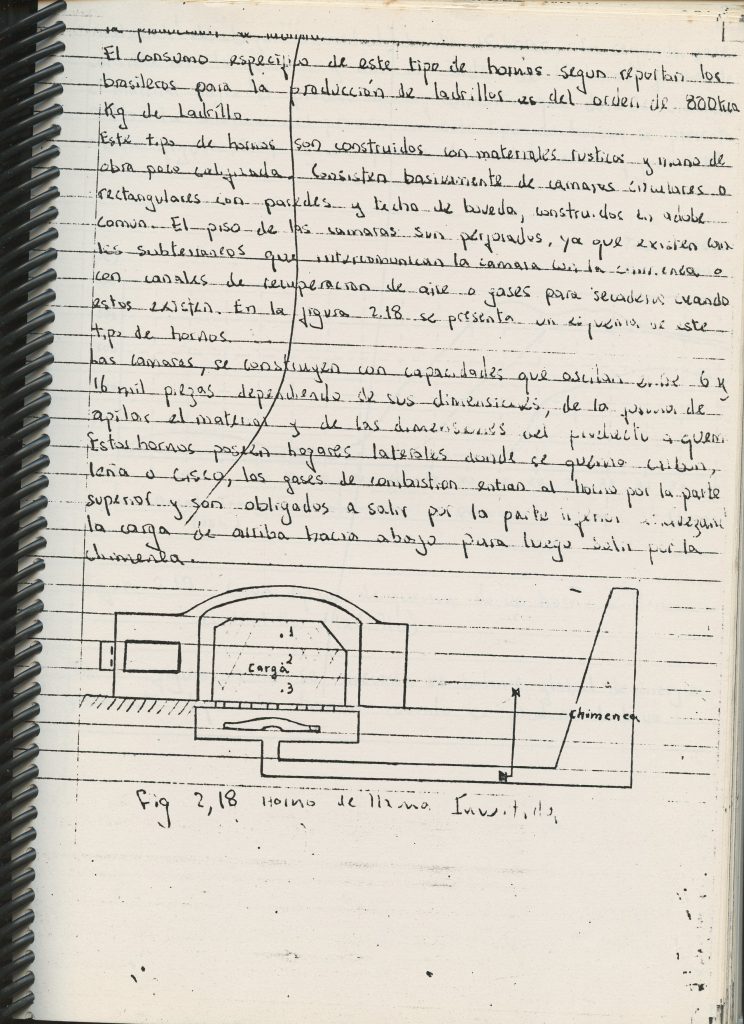 la producción de
El consumo especifico de este tipo de hornos segun reportan los
brasileros para la producción de ladrillos es del orden de 800 kca
Kg de ladrillo.
Este tipo de hornos son construidos con materiales rusticos y mano de
obra poco calificada. Consisten basicamente de camaras circulares o
rectangulares con paredes y techo de boveda, construidos en adobe
comun. El piso de las camaras son perforados, ya que existen
subterraneos que intercomunican la camara con la chimenea o
con canales de recuperacion de aire o gases para secaderos cuando
estos existen. En la figura 2.18 se presenta un esquema de este
tipo de hornos.
Las camaras, se construyen con capacidades que oscilan entre 6 y
16 mil piezas dependiendo de sus dimensiones, de la forma de
apilar el material y de las dimensiones del producto a quem
Estos hornos poseen hogares laterales donde se quema carbon,
leña o cisco, los gases de combustion entran al horno por la parte
superior y son obligados a salir por la parte inferior
la carga de arriba hacia abajo para luego salir por la
chimenea.
1
2
carga
3
chimenea
Fig 2,18 Horno de llama Invertida